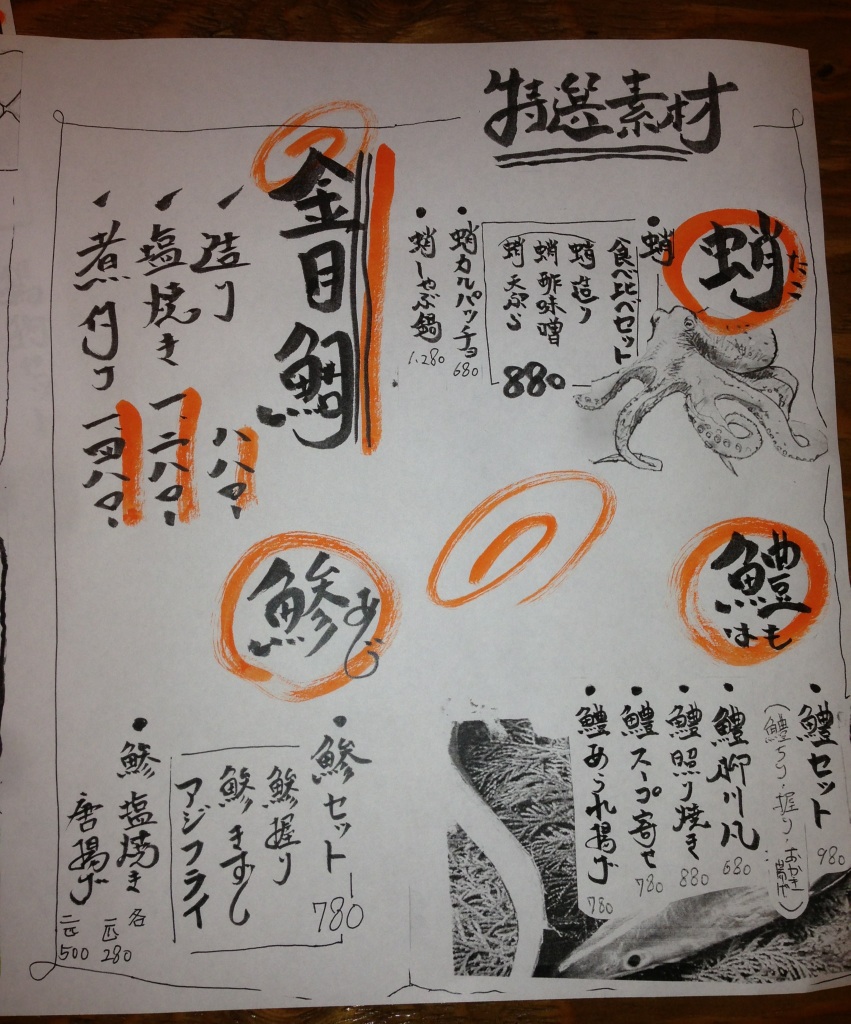 特選素材
蛸
たこ
・蛸
食べ比べセット
蛸造り
蛸酢味噌
蛸天ぷら
880
・蛸カルパッチョ 680
・蛸しゃぶ鍋 1.280
金目鯛
造り 八八〇
塩焼き 一、二八〇
煮付け 一、四八〇
鱧
はも
・鱧セット 980
・鱧柳川風 680
・鱧照り焼き 880
・鱧スープ寄せ 780
・鱧あられ揚げ 780
鯵
あじ
・鯵セット 780
鯵握り
鯵きずし
アジフライ
・鯵塩焼き 各
唐揚げ
一匹 280
二匹 500